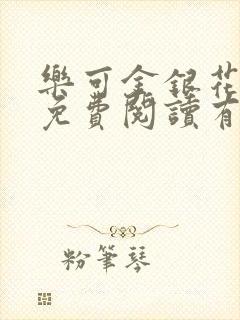 樂可金銀花
免費閱讀有
粉筆琴